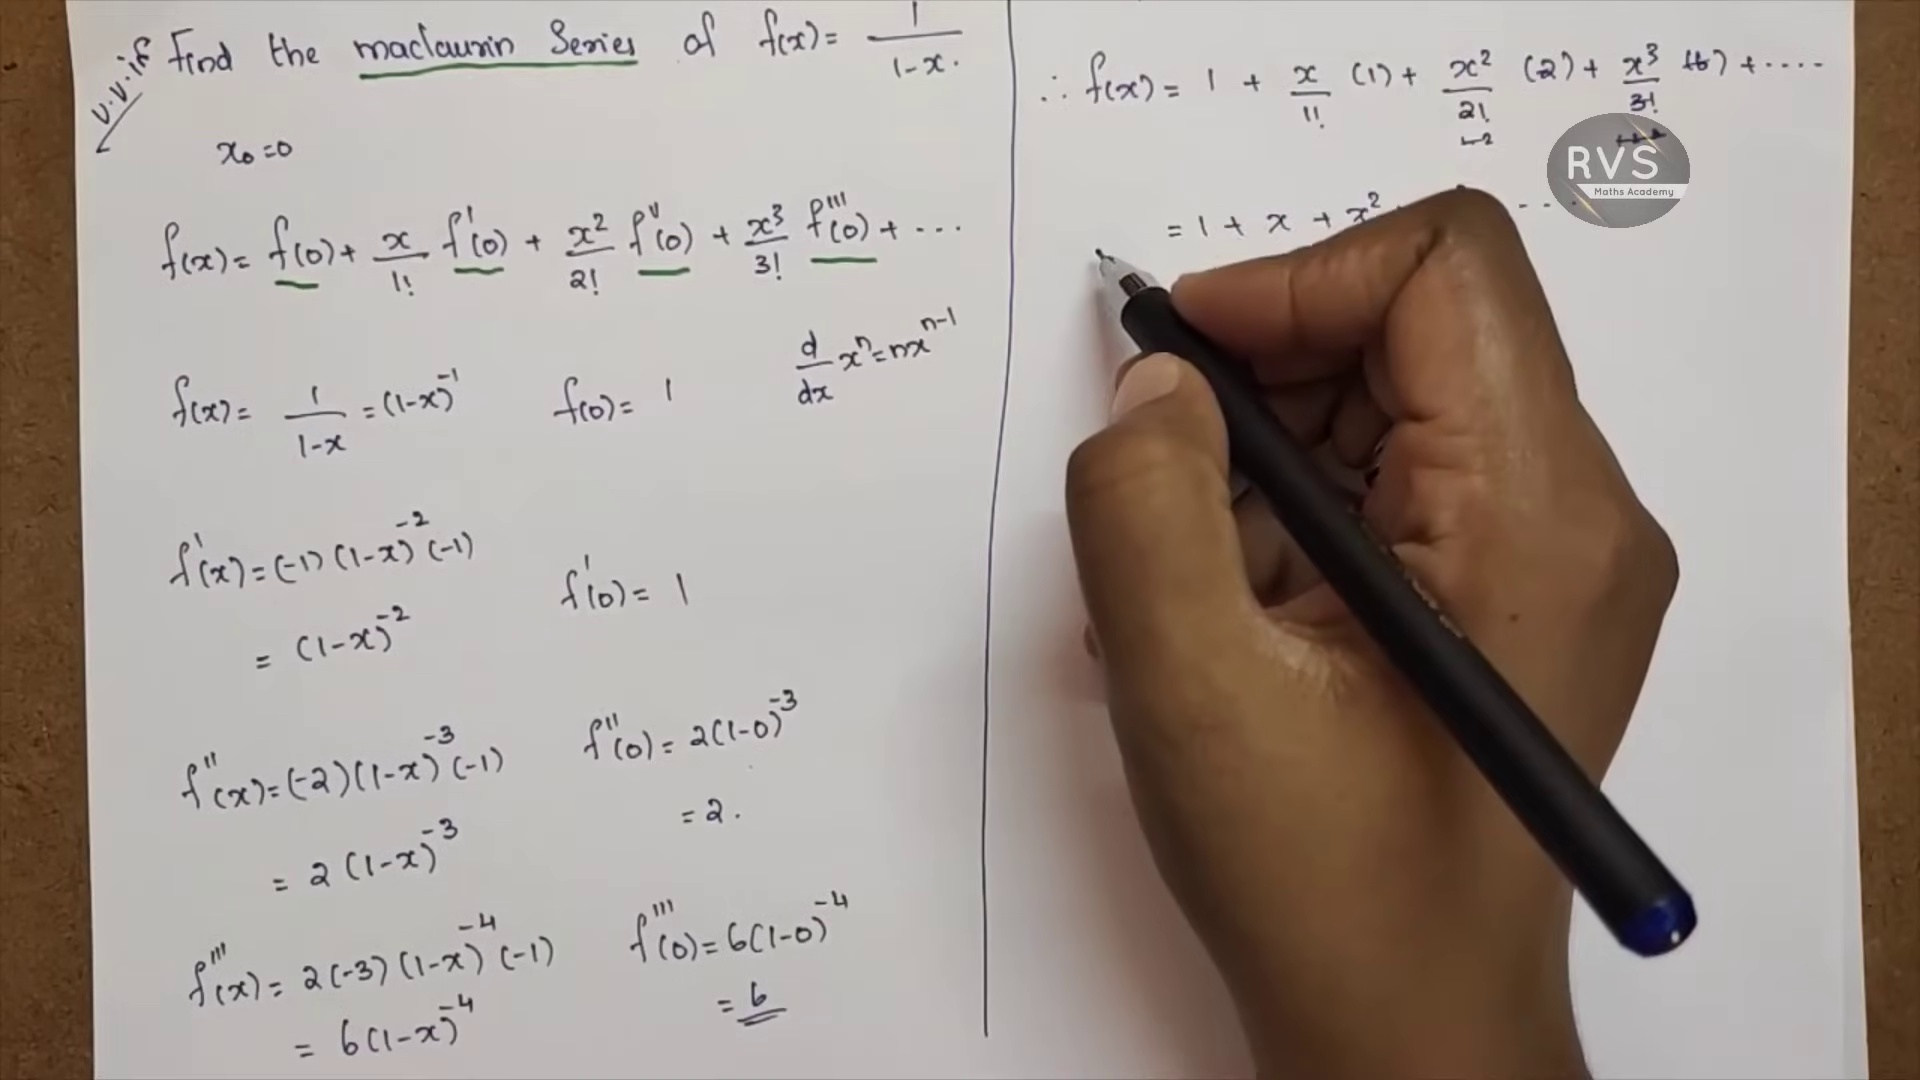 v.v.if
Find the maclaurin Series of f(x) = 1/(1-x).
x₀=0
f(x) = f(0) + x/1! f'(0) + x²/2! f''(0) + x³/3! f'''(0) + ...
f(x) = 1/(1-x) = (1-x)⁻¹ f(0) = 1 d/dx xⁿ = nxⁿ⁻¹
f'(x) = (-1)(1-x)⁻²(-1)
= (1-x)⁻² f'(0) = 1
f''(x) = (-2)(1-x)⁻³(-1) f''(0) = 2(1-0)⁻³
= 2(1-x)⁻³ = 2.
f'''(x) = 2(-3)(1-x)⁻⁴(-1) f'''(0) = 6(1-0)⁻⁴
= 6(1-x)⁻⁴ = 6
∴ f(x) = 1 + x/1! (1) + x²/2! (2) + x³/3! (6) + ....
= 1 + x + x²
RVS
Maths Academy